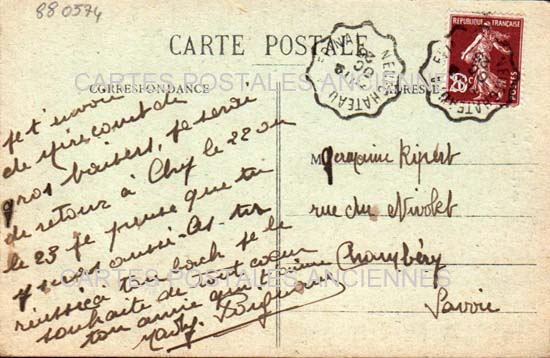 880574
CARTE POSTALE
RÉPUBLIQUE FRANÇAISE
POSTES
CARTES POSTALES ANCIENNES
CORRESPONDANCE
ADRESSE
Je t'envoie
de Mirecourt de
gros baisers, je serai
de retour à Chy le 22 ou
le 23 je pense que tu
y seras aussi. As-tu
réussi à ton bach je te
souhaite de tout cœur
ton amie qui t'aime
Germaine Ripert
rue du Nivolet
Chambéry
Savoie
CARTES POSTALES ANCIENNES